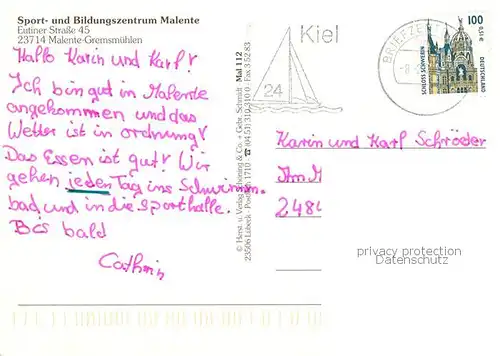 Sport- und Bildungszentrum Malente
Eutiner Straße 45
23714 Malente-Gremsmühlen
Hallo Karin und Karl!
Ich bin gut in Malente
angekommen und das
Wetter ist in ordnung!
Das Essen ist gut! Wir
gehen jeden Tag ins Schwimm-
bad und in die Sporthalle.
Bis bald
Cathrin
© Herst. u. Verlag Schöning & Co. + Gebr. Schmidt · Mail 112
23506 Lübeck · Postfach 1710 · ☎ (04 51) 310 310 0 · Fax 3 52 83
Kiel
24
BRIEFZE
100
0,51 €
DEUTSCHLAND
SCHLOSS SCHWERIN
Karin und Karl Schröder
Am M
248
privacy protection
Datenschutz